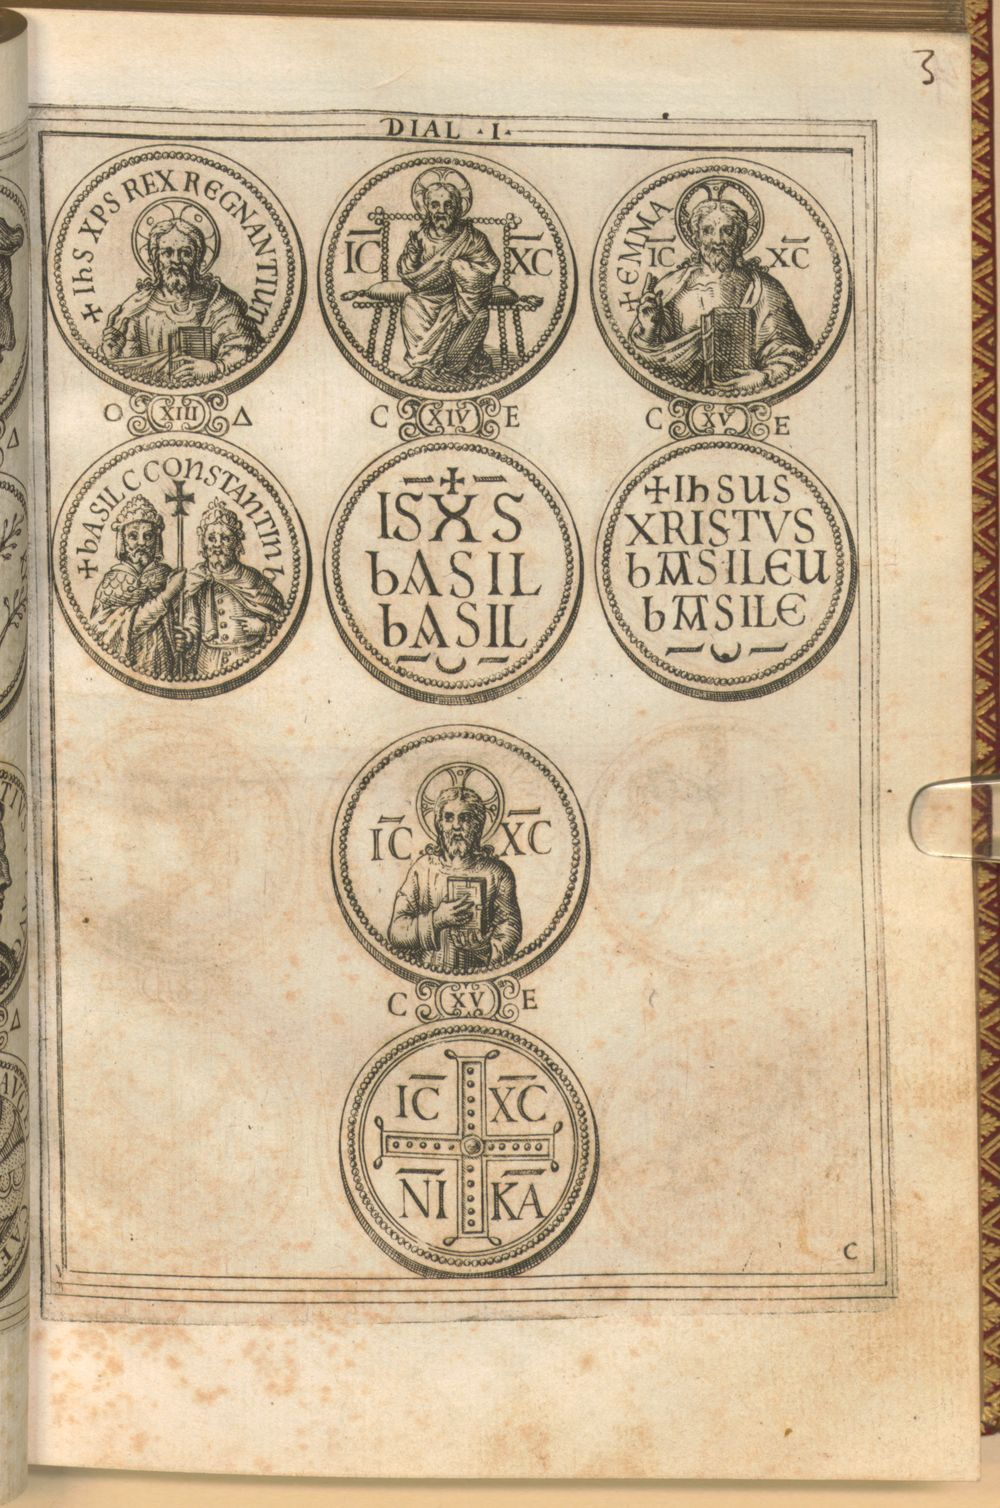 3
DIAL · I ·
+ IhS XPS REX REGNANTIUM
IC XC
+ EMMA
IC XC
O XIII Δ
C XIV E
C XV E
+ bASIL C CONSTANTIN b
IS XS
bASIL
bASIL
+ IhSUS
XRISTVS
bASILEU
bASILE
IC XC
C XV E
IC XC
NI KA
C